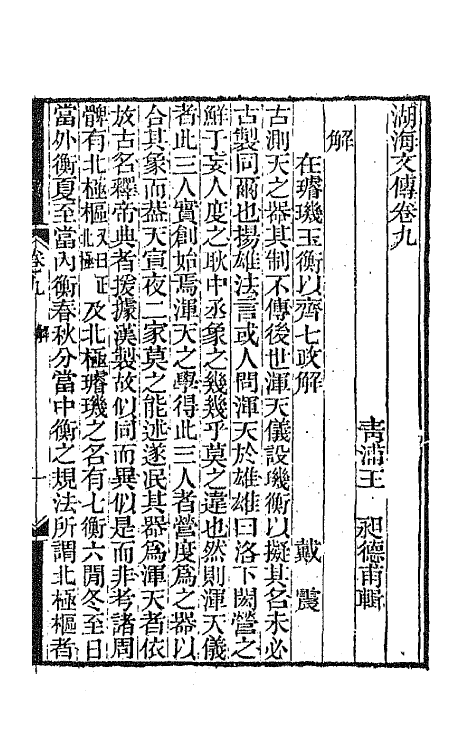 湖海文傳卷九
青浦王　昶德甫輯
解
在璿璣玉衡以齊七政解　戴　震
古測天之器其制不傳後世渾天儀設璣衡以擬其名未必
古製同爾也揚雄法言或人問渾天於雄雄曰洛下閎營之
鮮于妄人度之耿中丞象之幾幾乎莫之違也然則渾天儀
者此三人實創始焉渾天之學得此三人者營度為之器以
合其象而葢天宣夜二家莫之能述遂泯其器為渾天者依
放古名釋帝典者援據漢製故似同而異似是而非考諸周
髀有北極樞又曰正北極及北極璿璣之名有七衡六閒冬至日
當外衡夏至當內衡春秋分當中衡之規法所謂北極樞者
卷九　解　一